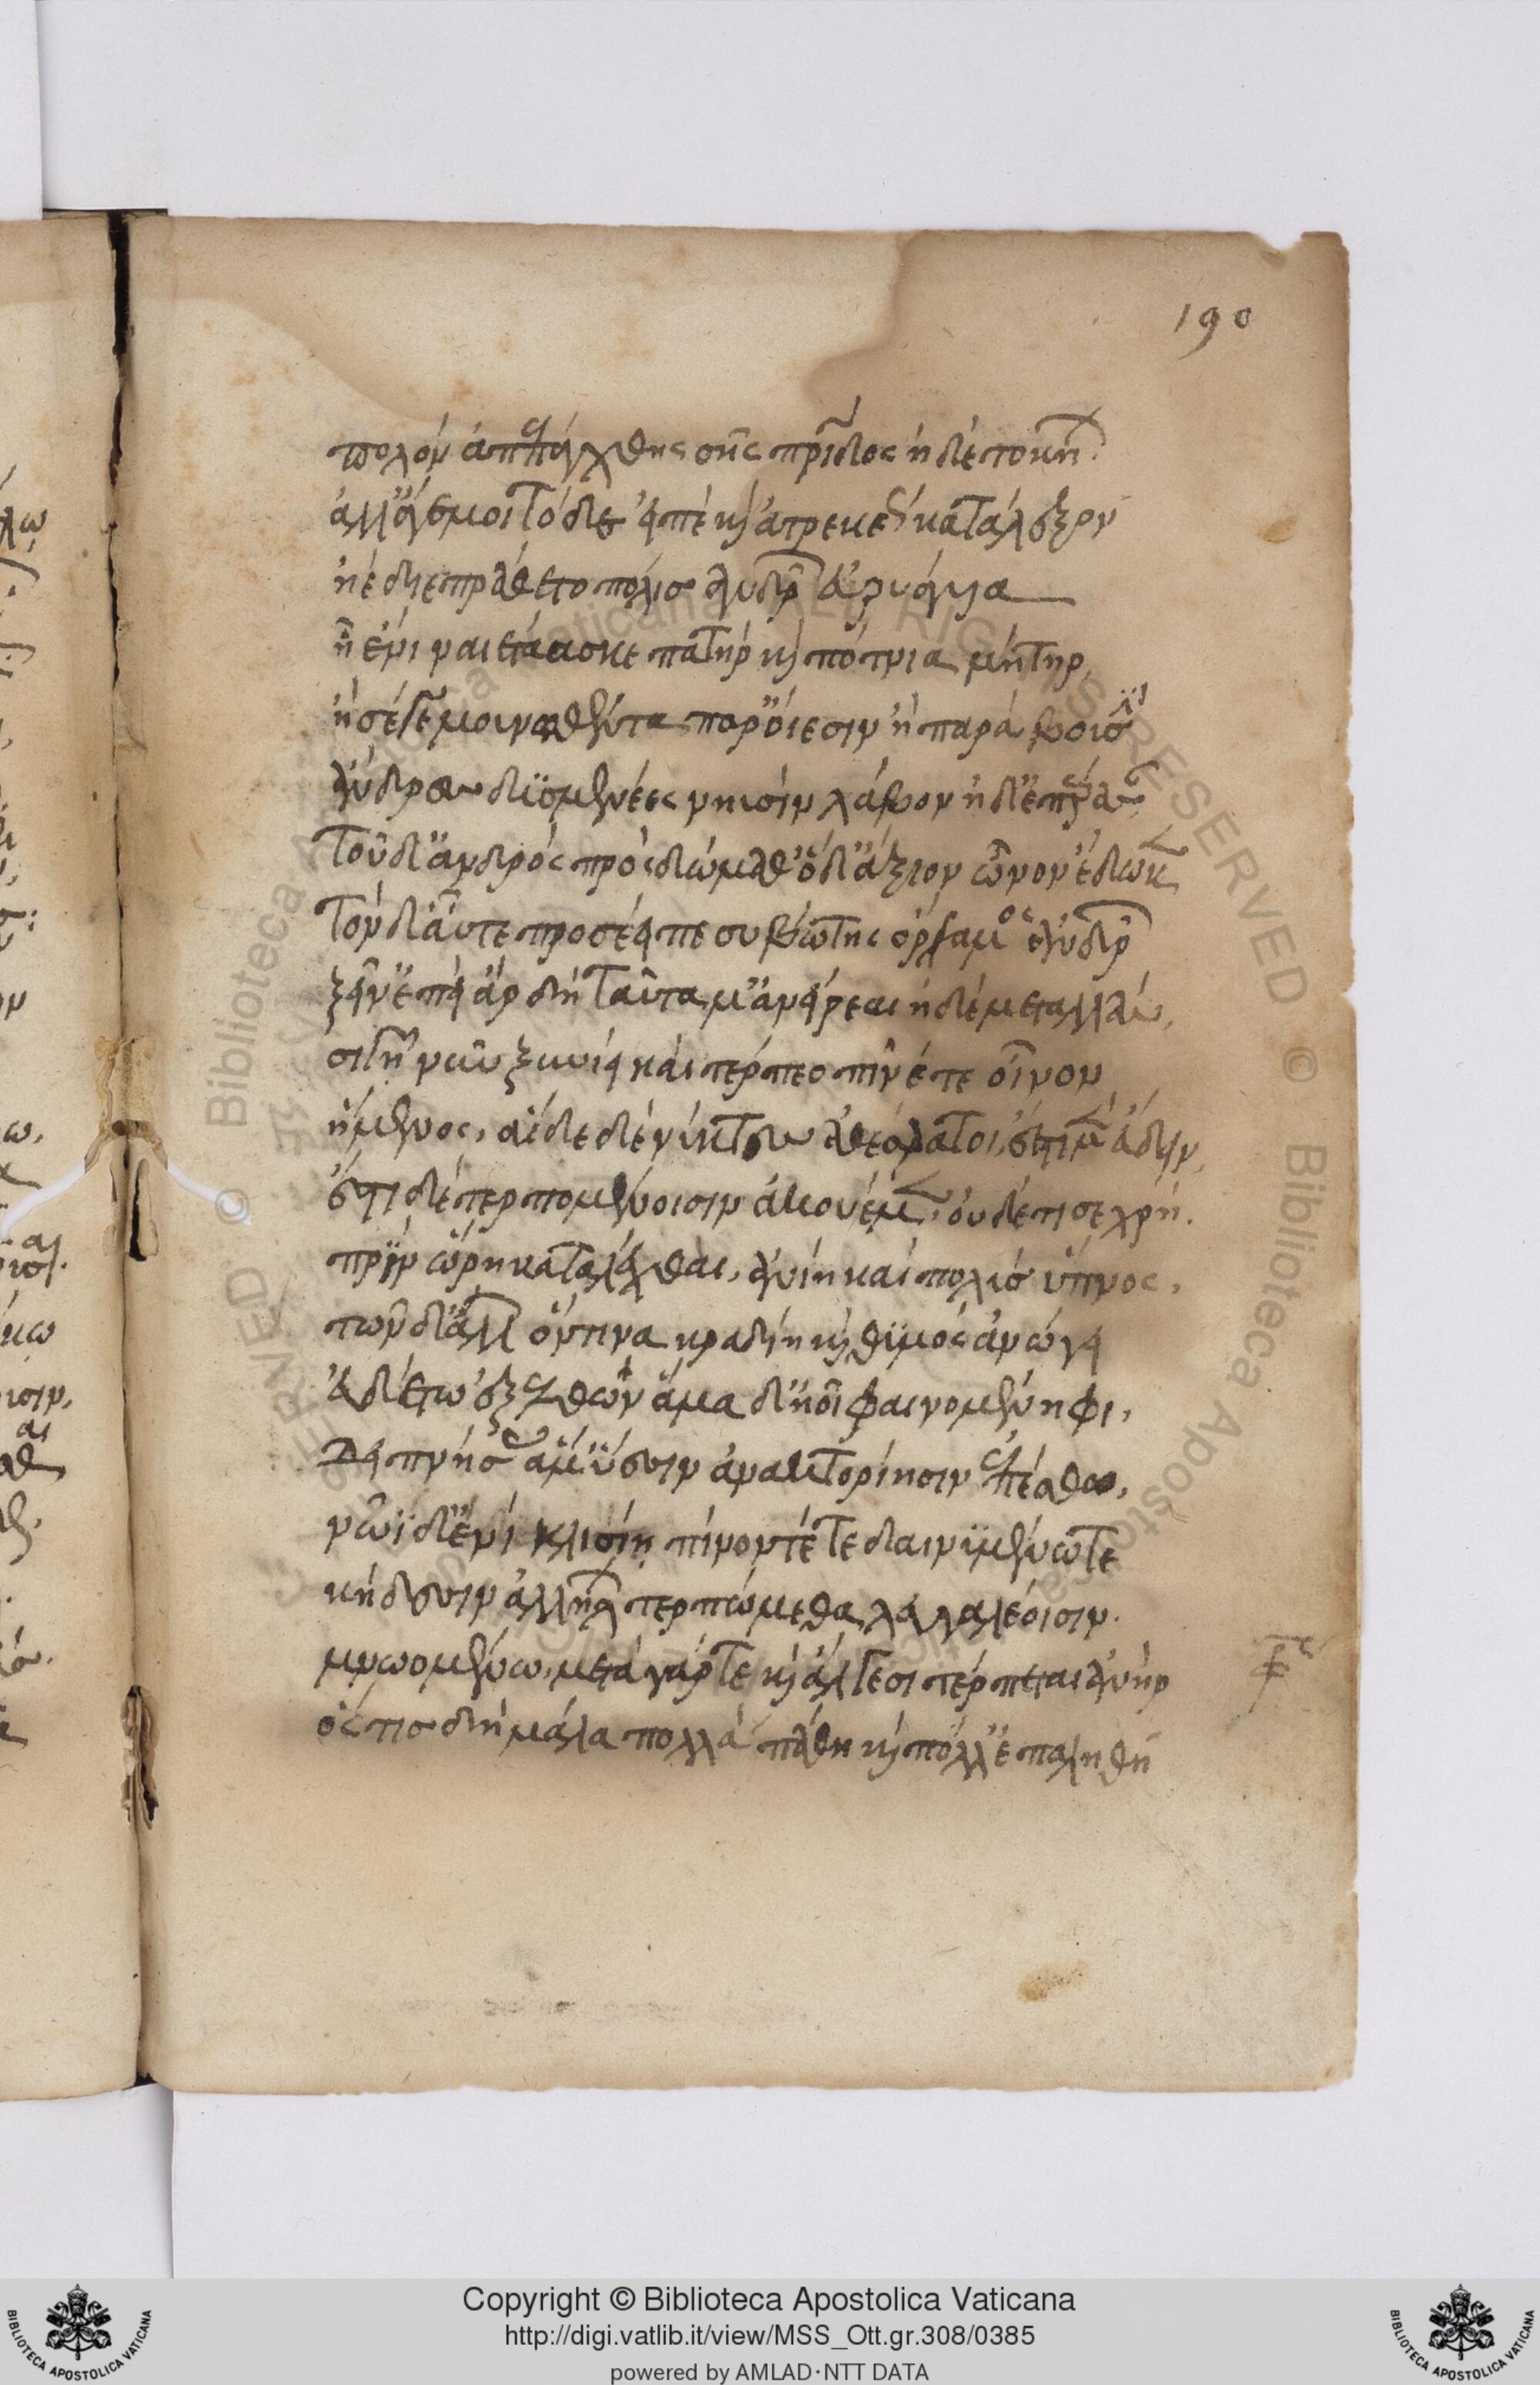 190
πολὸν ἀπεπλάγχθης σῆς πατρίδος ἠδὲ τοκήων
ἀλλ' ἄγε μοι τόδε εἰπὲ καὶ ἀτρεκέως κατάλεξον
ἠὲ διεπράθετο πόλις ἀνδρῶν εὐρυάγυια
ᾗ ἔνι ναιετάασκε πατὴρ καὶ πότνια μήτηρ,
ἢ σέ γε μουνωθέντα παρ' ὄιεσιν ἢ παρὰ βουσὶν
ἄνδρες δυσμενέες νηυσὶν λάβον ἠδ' ἐπέρασαν
τοῦ δ' ἀνδρὸς πρὸς δώμαθ' ὁ δ' ἄξιον ὦνον ἔδωκε
τὸν δ' αὖτε προσέειπε συβώτης ὄρχαμος ἀνδρῶν
ξεῖν' ἐπεὶ ἂρ δὴ ταῦτα μ' ἀνείρεαι ἠδὲ μεταλλᾷς,
σιγῇ νῦν ξυνίει καὶ τέρπεο πῖνέ τε οἶνον
ἥμενος, αἵδε δὲ νύκτες ἀθέσφατοι, ἔστι μὲν εὕδειν,
ἔστι δὲ τερπομένοισιν ἀκουέμεν, οὐδέ τι σε χρή.
πρὶν ὥρη καταλέχθαι, ἀνίη καὶ πολὺς ὕπνος,
τῶν δ' ἄλλων ὅντινα κραδίη καὶ θυμὸς ἀνώγει
εὑδέτω ἐξελθών ἅμα δ' ἠοῖ φαινομένηφι,
δειπνήσας ἅμ' ὕεσσιν ἀνακτορίῃσιν ἑπέσθω,
νῶϊ δ' ἐνὶ κλισίῃ πίνοντέ τε δαινυμένω τε
κήδεσιν ἀλλήλων τερπώμεθα λευγαλέοισιν.
μνωομένω, μετὰ γάρ τε καὶ ἄλγεσι τέρπεται ἀνὴρ
ὅς τις δὴ μάλα πολλὰ πάθῃ καὶ πόλλ' ἐπαληθῇ
Copyright © Biblioteca Apostolica Vaticana
http://digi.vatlib.it/view/MSS_Ott.gr.308/0385
powered by AMLAD·NTT DATA